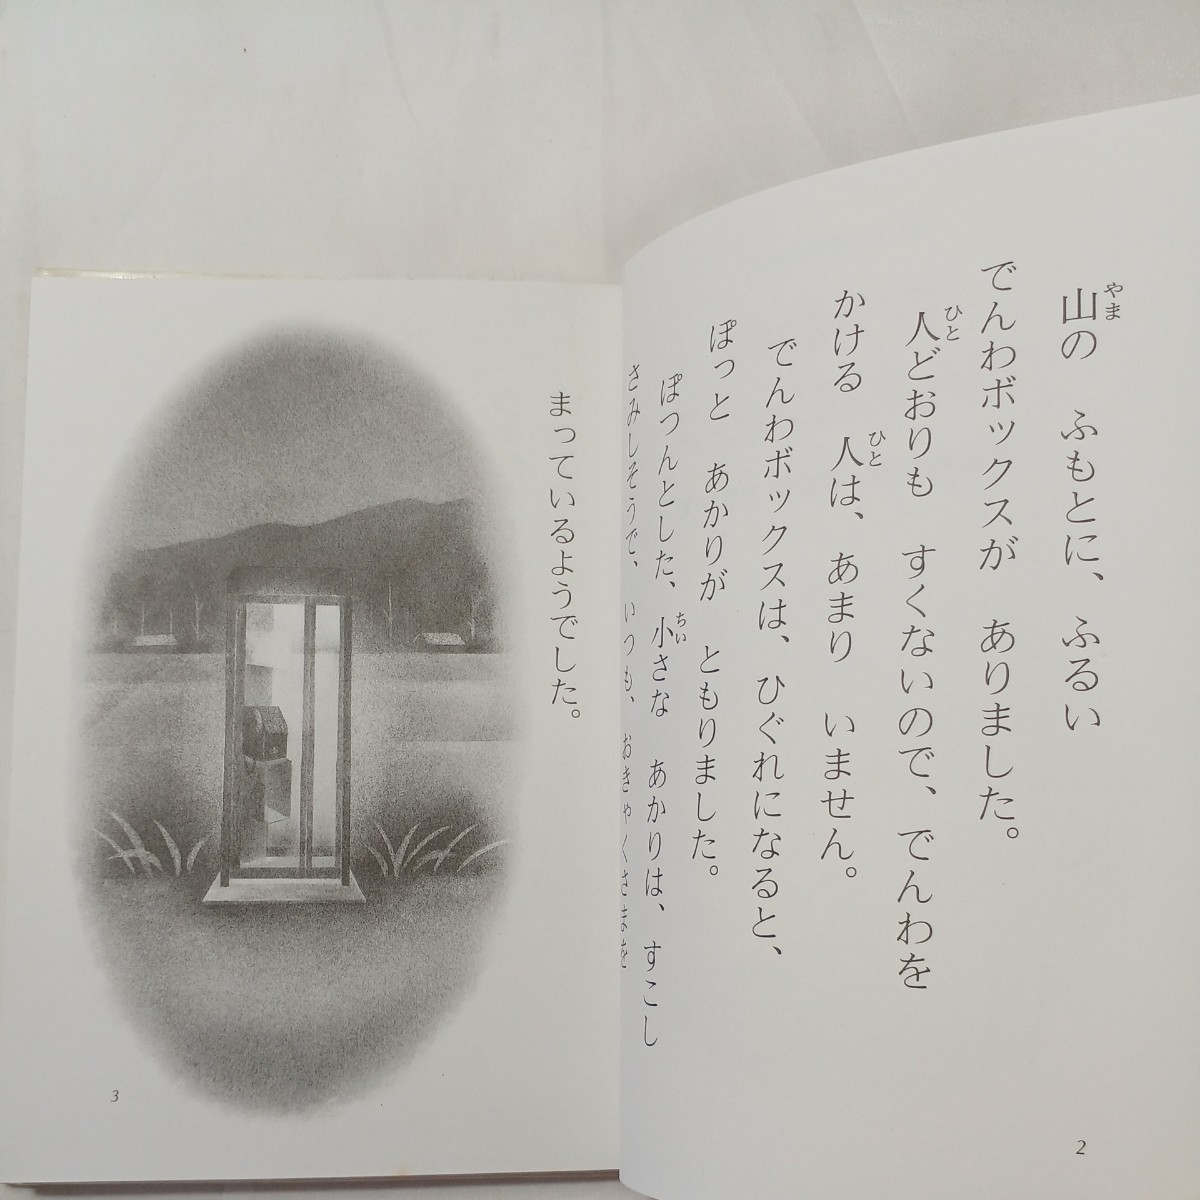 山の ふもとに、ふるい
やま
でんわボックスが ありました。
人どおりも すくないので、でんわを
ひと
かける 人は、あまり いません。
ひと
でんわボックスは、ひぐれになると、
ぽっと あかりが ともりました。
ぽつんとした、小さな あかりは、すこし
ちい
さみしそうで、いつも、おきゃくさまを
2
まっているようでした。
3